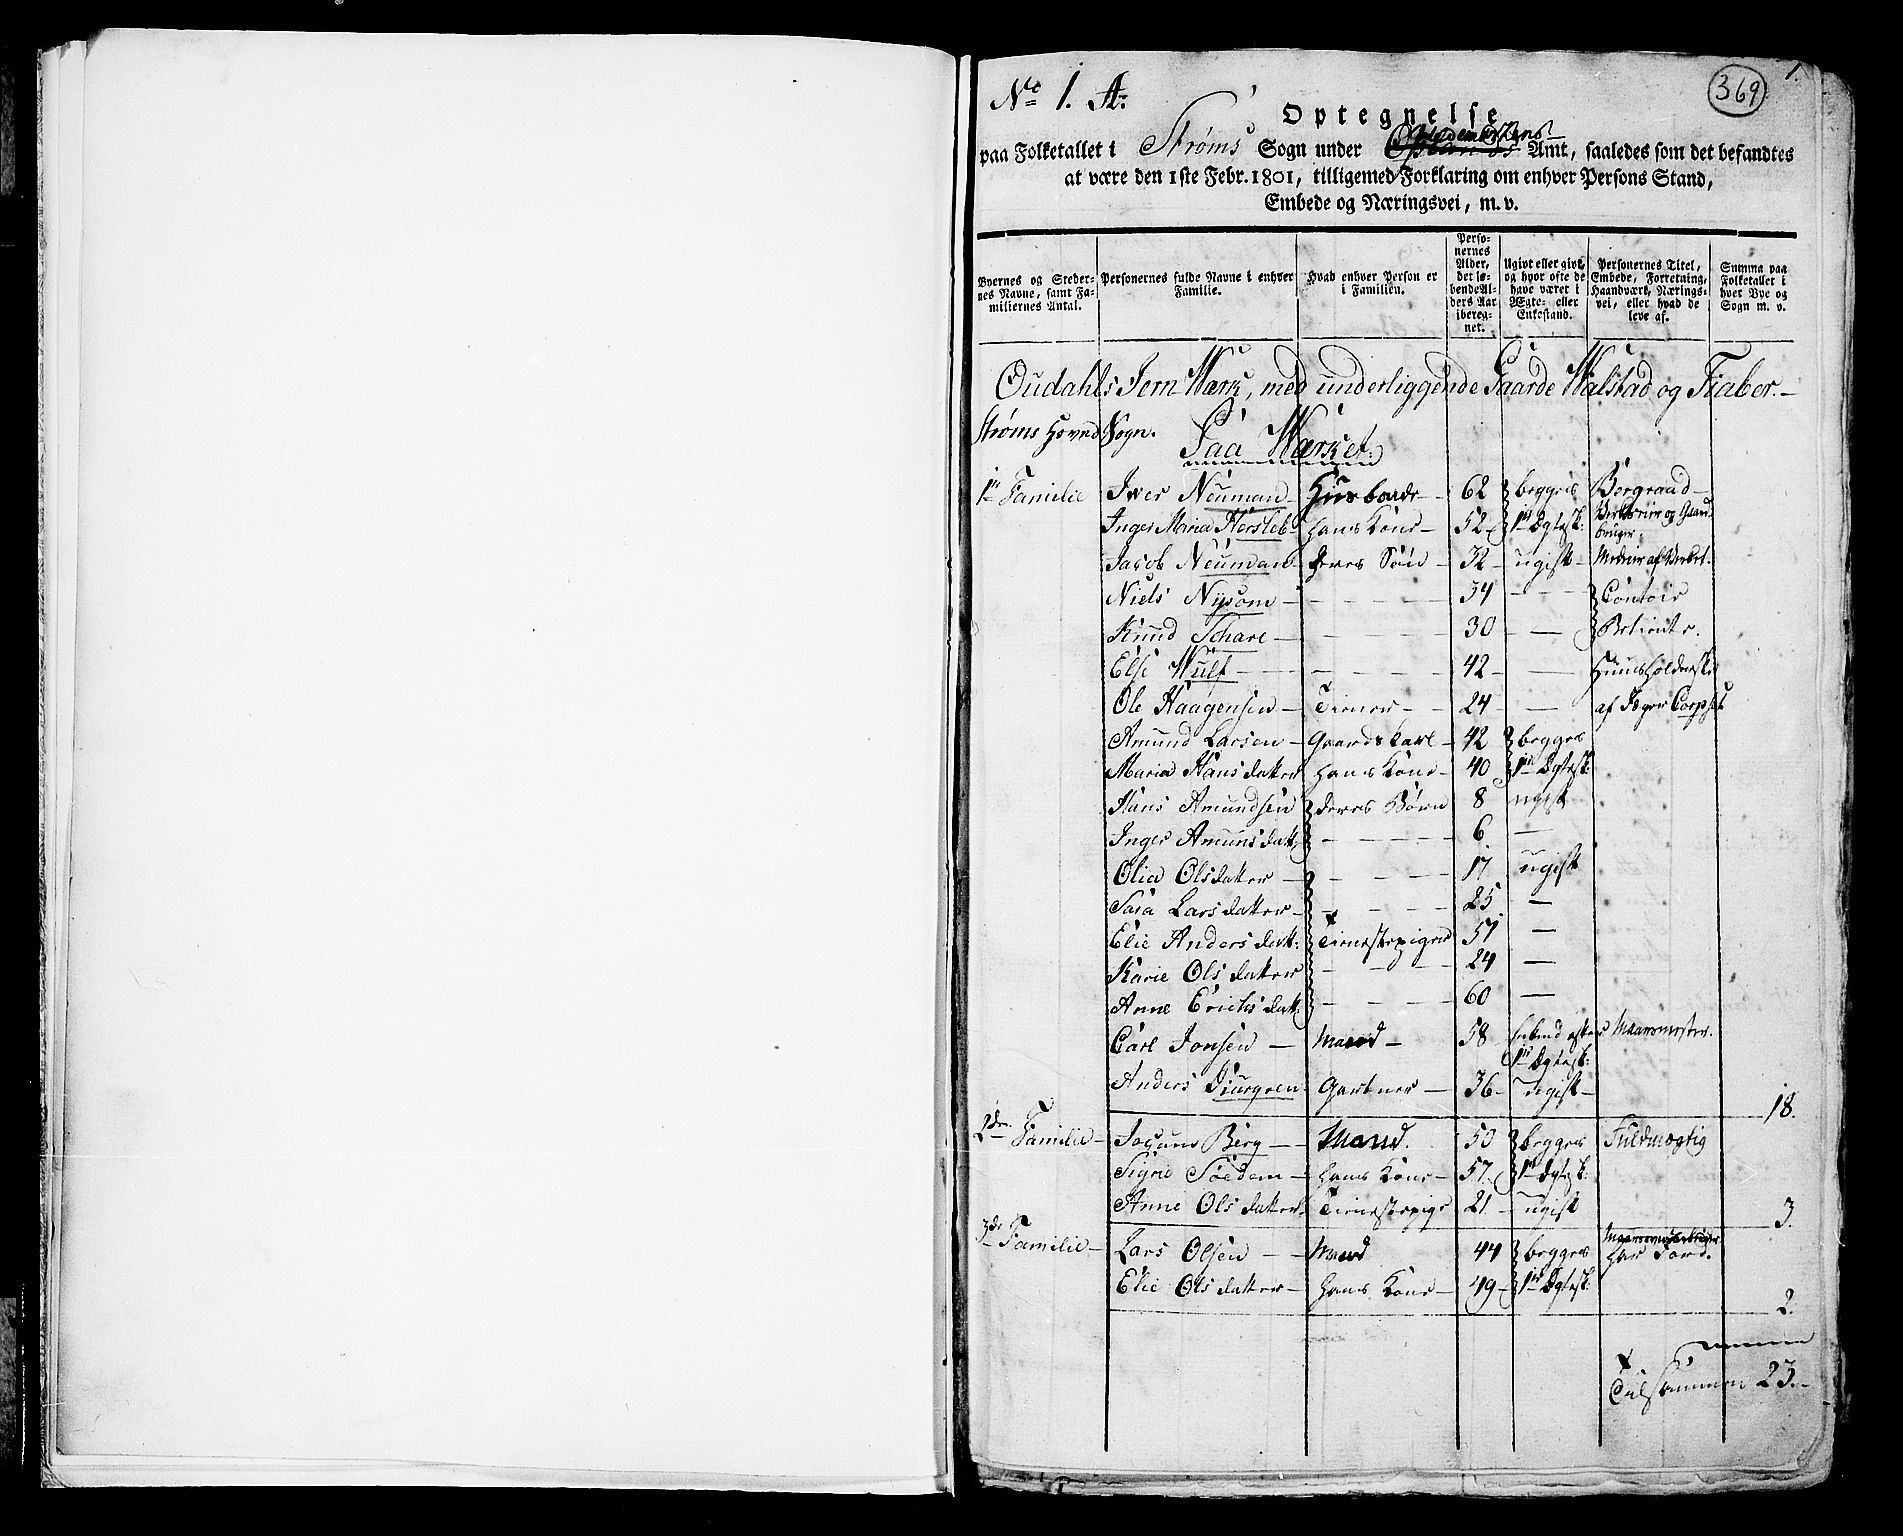 No 1. A:
369
1.
Optegnelse
paa Folketallet i Strøms Sogn under Hedemarkens Amt, saaledes som det befandtes
at være den 1ste Febr. 1801, tilligemed Forklaring om enhver Persons Stand,
Embede og Næringsvei, m. v.
Byernes og Stedernes Navne, samt Familiernes Antal.
Personernes fulde Navne i enhver Familie.
Hvad enhver Person er i Familien.
Personernes Alder, det løbende Alders Aar iberegnet.
Ugivt eller givt, og hvor ofte de have været i Ægte- eller Enkestand.
Personernes Titel, Embede, Forretning, Haandværk, Næringsvei, eller hvad de leve af.
Summa paa Folketallet i hver Bye og Sogn m. v.
Oudahls Jern Værk, med underliggende Gaarde Walstad og Tiaber.
Strøms Hoved Sogn. Paa Værket
1te Familie Iwer Neuman Husbonde 62 begge i Bergraad
Inger Maria Hersleb hans Kone 52 1te Ægtesk: Verkseier og Gaardbruger
Jacob Neuman deres Søn 32 ugift Medeier af Verket.
Niels Nysom — 34 — Contoir
Knud Schare — 30 — Betiente.
Else Wulf — 42 — Huusholderske
Ole Haagensen Tiener 24 — af Jæger Corpset
Amund Larsen Gaardskarl 42 begge
Maria Hans datter hans Kone 40 1te Ægtesk:
Hans Amundsen deres Børn 8 ugift
Inger Amuns datt: — 6 —
Olia Olsdatter — 17 ugift
Sara Lars datter — 25 —
Elie Anders datt: Tienestepiger 57 —
Karie Ols datter — 24 —
Anne Erichs datt: — 60 —
Carl Jonsen Mand 58 Enkemand efter 1te Ægtesk: Maarsmester.
Anders Diurgren Gartner 36 ugift
18.
2den Familie Johans Berg Mand. 50 begge Fuldmægtig
Signe Soedem hans Kone 57. 1te Ægtesk:
Anne Ols datter Tienestepige 21 ugift
3.
3de Familie Lars Olsen Mand 44 begge har Jord.
Elie Ols datter hans Kone 49 1te Ægtesk:
2.
Tilsammen 23.